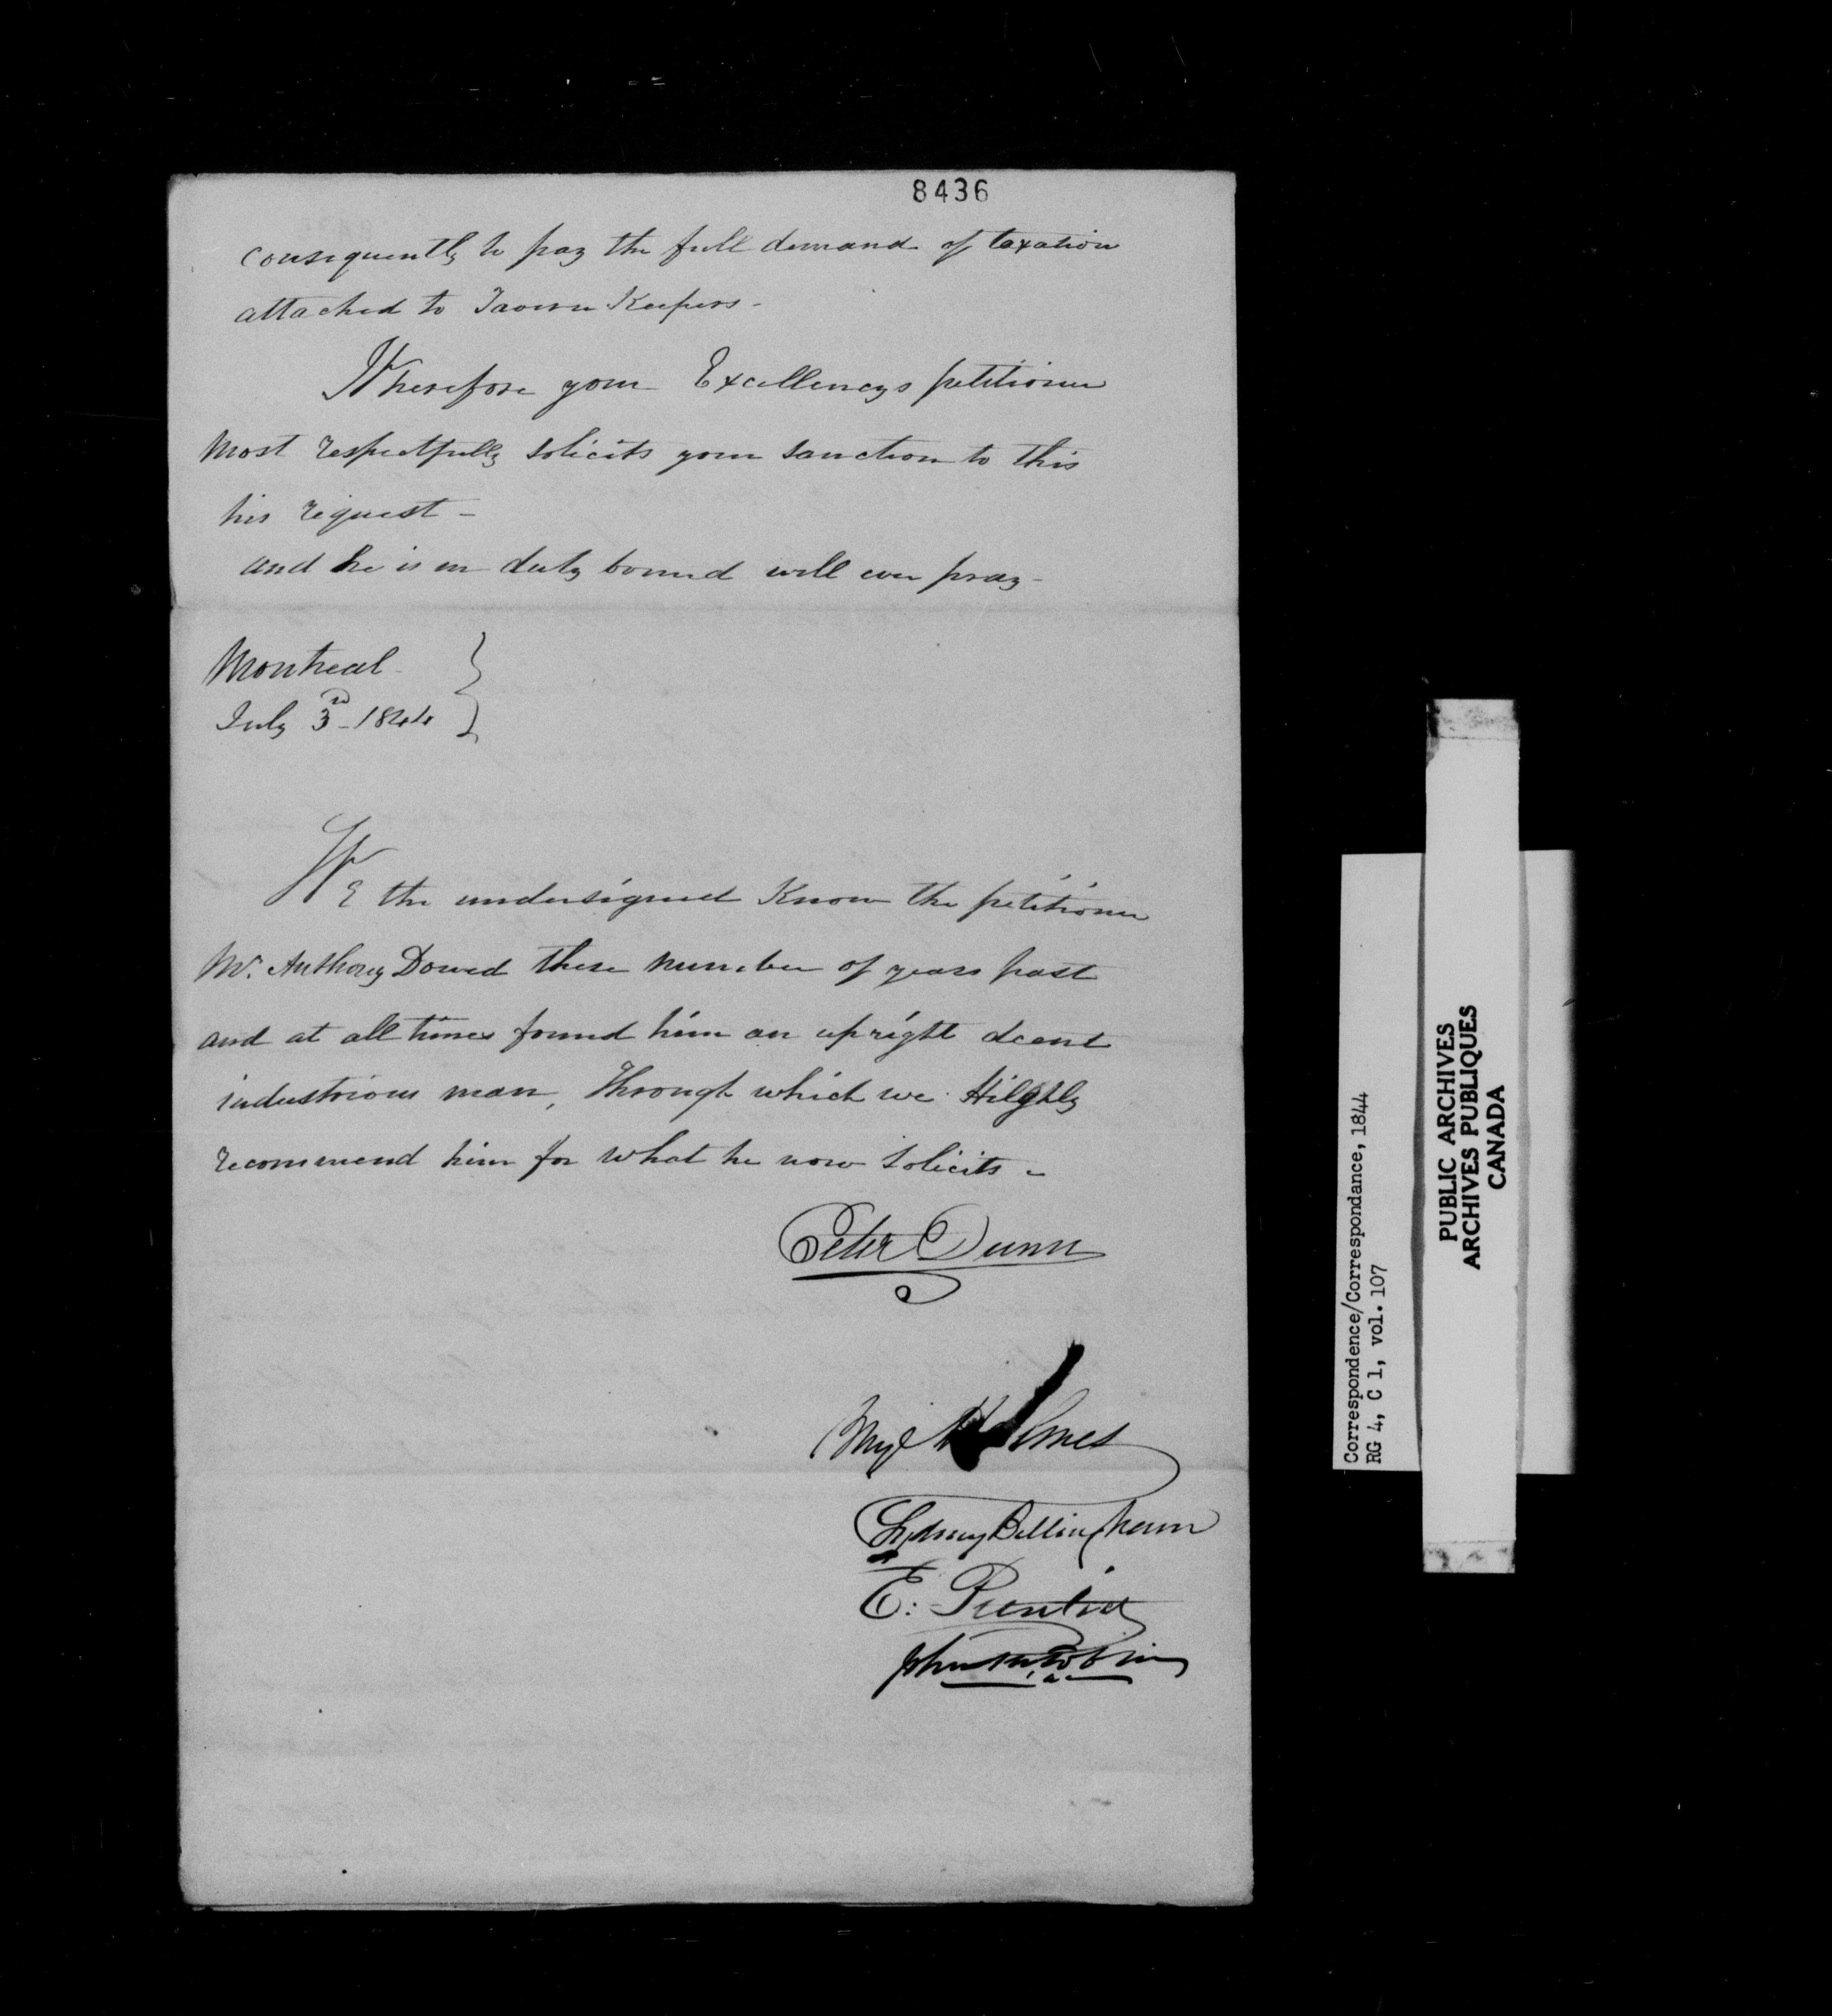 8436
consequently to pay the full demand of taxation
attached to Tavern Keepers -
Wherefore your Excellencys petitioner
Most respectfully solicits your sanction to this
his request -
and he is in duty bound will ever pray -
Montreal
July 3rd - 1844
WE the undersigned Know the petitioner
Mr. Anthony Dowd these number of years past
and at all times found him an upright decent
industrious man, Through which we Hilghly
recommend him for what he now solicits -
Peter Dunn
Benj Holmes
Sydney Bellingham
E:
John
Correspondence/Correspondance, 1844
RG 4, C 1, vol. 107
PUBLIC ARCHIVES
ARCHIVES PUBLIQUES
CANADA